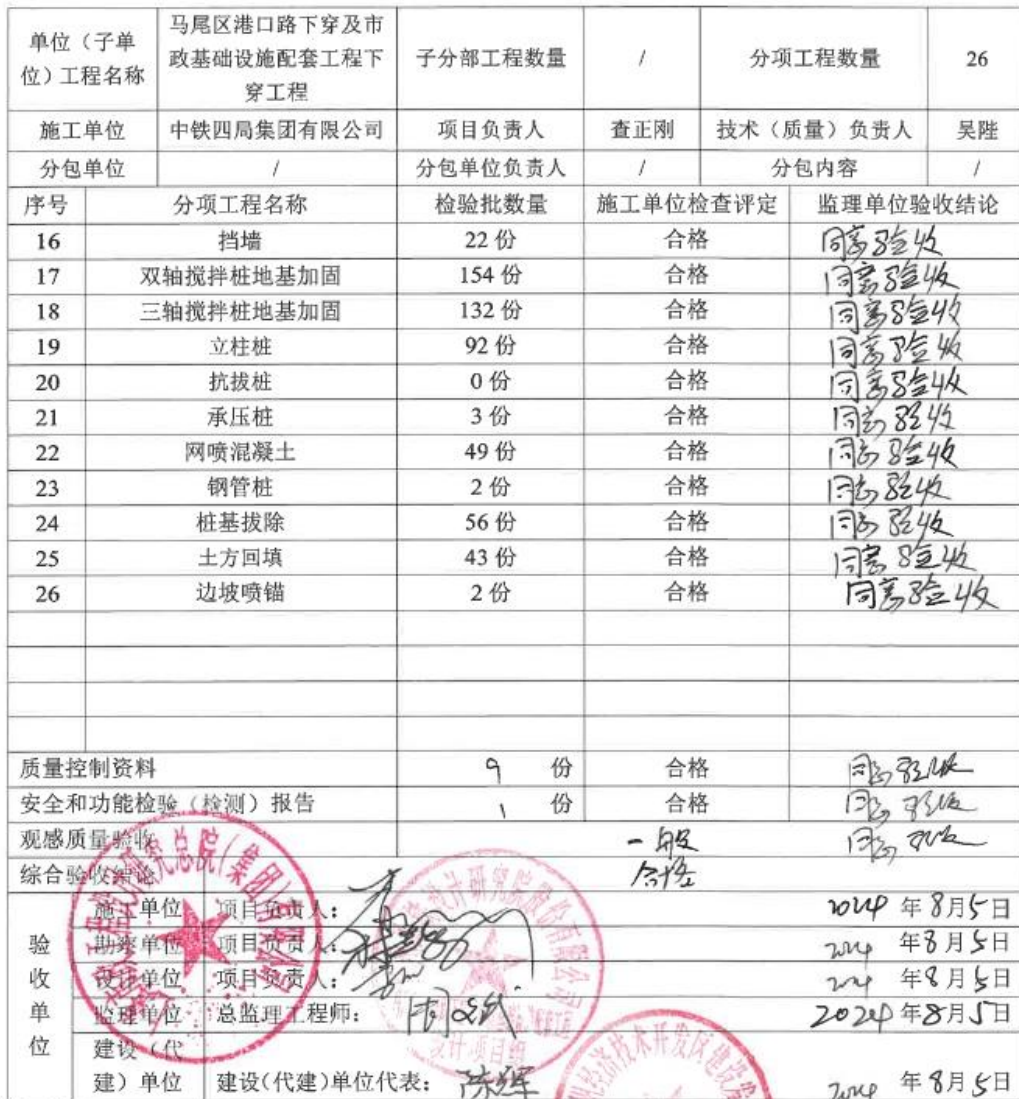 单位（子单位）工程名称 马尾区港口路下穿及市政基础设施配套工程下穿工程 子分部工程数量 / 分项工程数量 26
施工单位 中铁四局集团有限公司 项目负责人 查正刚 技术（质量）负责人 吴陛
分包单位 / 分包单位负责人 / 分包内容 /
序号 分项工程名称 检验批数量 施工单位检查评定 监理单位验收结论
16 挡墙 22 份 合格 同意验收
17 双轴搅拌桩地基加固 154 份 合格 同意验收
18 三轴搅拌桩地基加固 132 份 合格 同意验收
19 立柱桩 92 份 合格 同意验收
20 抗拔桩 0 份 合格 同意验收
21 承压桩 3 份 合格 同意验收
22 网喷混凝土 49 份 合格 同意验收
23 钢管桩 2 份 合格 同意验收
24 桩基拔除 56 份 合格 同意验收
25 土方回填 43 份 合格 同意验收
26 边坡喷锚 2 份 合格 同意验收
质量控制资料 9 份 合格 同意验收
安全和功能检验（检测）报告 1 份 合格 同意验收
观感质量验收 一般 同意验收
综合验收结论 合格
验收单位
施工单位 项目负责人： 2024 年 8 月 5 日
勘察单位 项目负责人： 2024 年 8 月 5 日
设计单位 项目负责人： 2024 年 8 月 5 日
监理单位 总监理工程师： 2024 年 8 月 5 日
建设（代建）单位 建设(代建)单位代表： 陈辉 2024 年 8 月 5 日